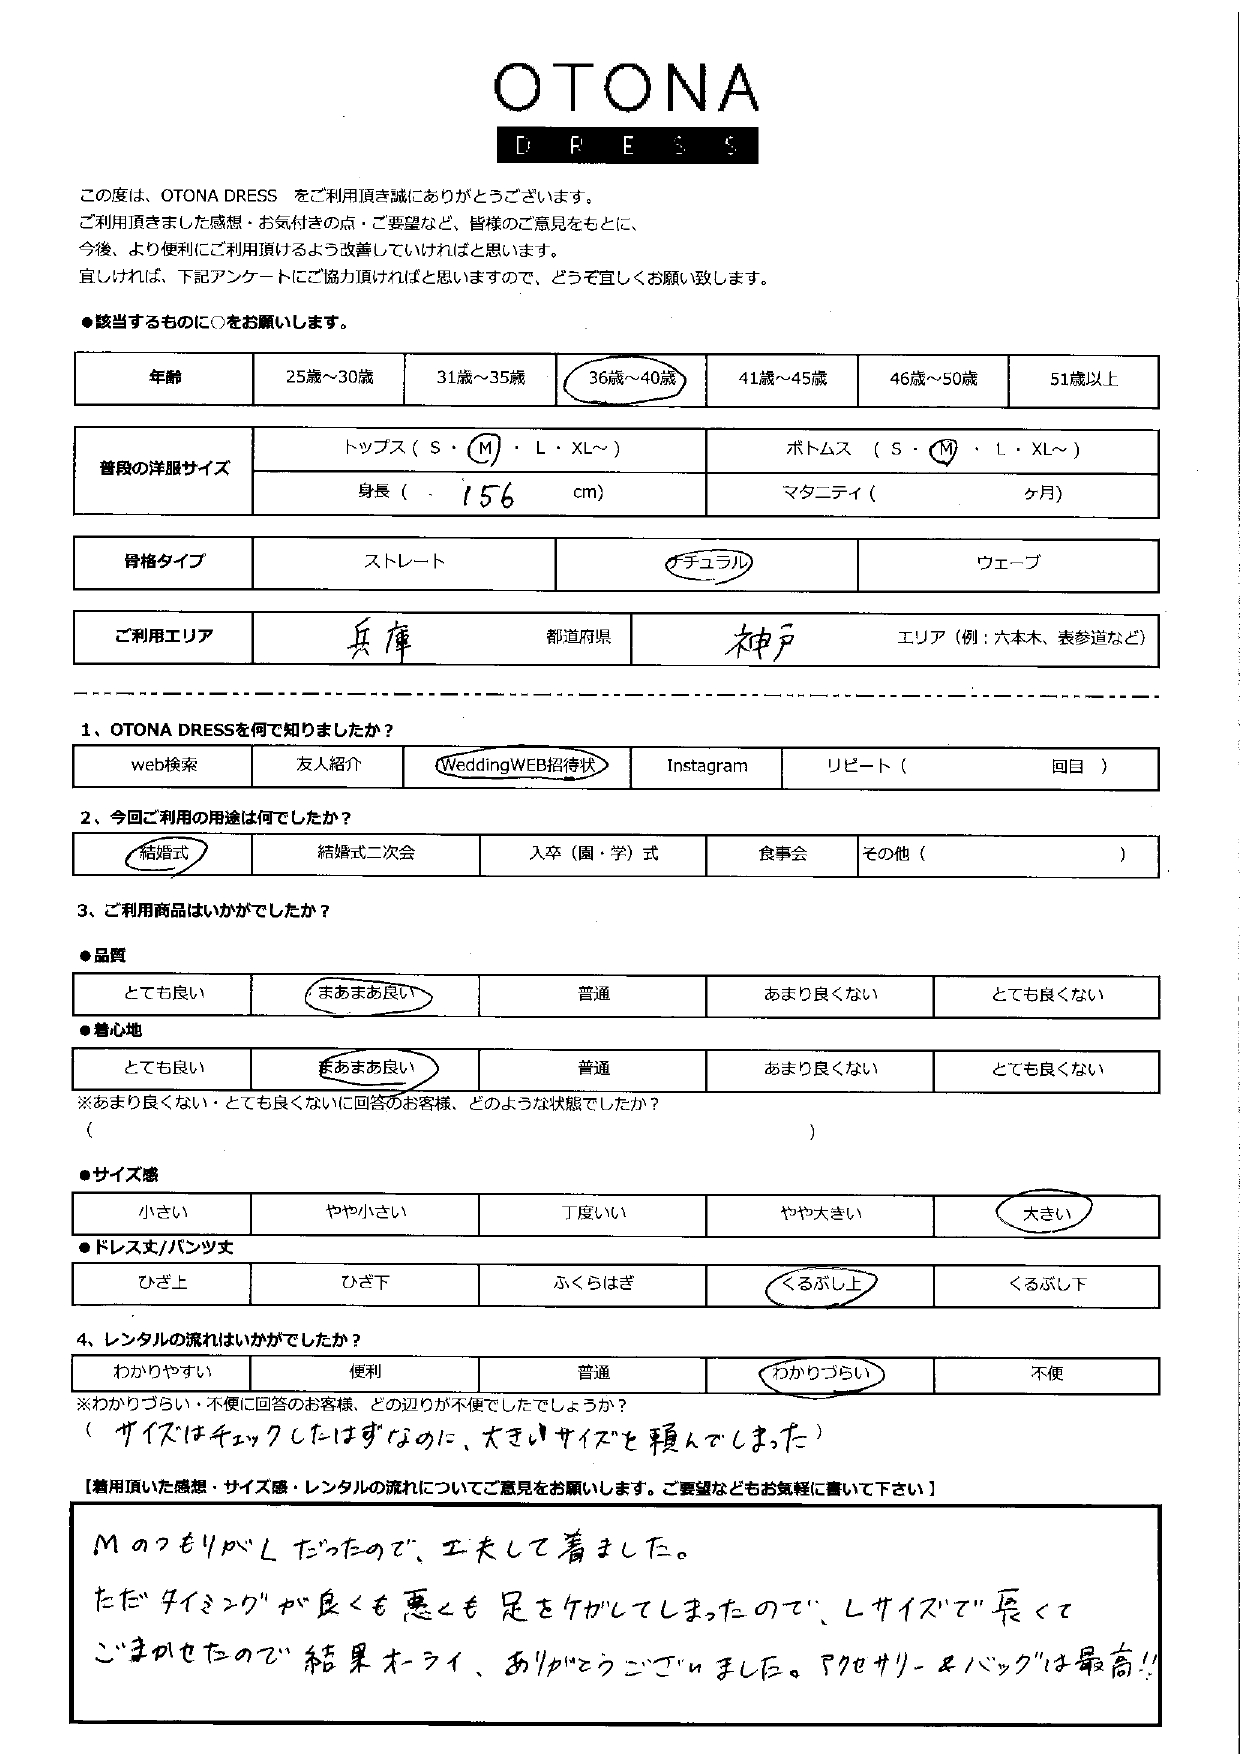 OTONA
DRESS
この度は、OTONA DRESS　をご利用頂き誠にありがとうございます。
ご利用頂きました感想・お気付きの点・ご要望など、皆様のご意見をもとに、
今後、より便利にご利用頂けるよう改善していければと思います。
宜しければ、下記アンケートにご協力頂ければと思いますので、どうぞ宜しくお願い致します。
●該当するものに○をお願いします。
年齢 25歳～30歳 31歳～35歳 36歳～40歳 41歳～45歳 46歳～50歳 51歳以上
普段の洋服サイズ トップス（ S ・ M ・ L ・ XL～ ） ボトムス （ S ・ M ・ L ・ XL～ ）
身長（ 156 cm） マタニティ（ ヶ月）
骨格タイプ ストレート ナチュラル ウェーブ
ご利用エリア 兵庫 都道府県 神戸 エリア（例：六本木、表参道など）
1、OTONA DRESSを何で知りましたか？
web検索 友人紹介 WeddingWEB招待状 Instagram リピート（ 回目 ）
2、今回ご利用の用途は何でしたか？
結婚式 結婚式二次会 入卒（園・学）式 食事会 その他（ ）
3、ご利用商品はいかがでしたか？
●品質
とても良い まあまあ良い 普通 あまり良くない とても良くない
●着心地
とても良い まあまあ良い 普通 あまり良くない とても良くない
※あまり良くない・とても良くないに回答のお客様、どのような状態でしたか？
（ ）
●サイズ感
小さい やや小さい 丁度いい やや大きい 大きい
●ドレス丈/パンツ丈
ひざ上 ひざ下 ふくらはぎ くるぶし上 くるぶし下
4、レンタルの流れはいかがでしたか？
わかりやすい 便利 普通 わかりづらい 不便
※わかりづらい・不便に回答のお客様、どの辺りが不便でしたでしょうか？
（ サイズはチェックしたはずなのに、大きいサイズを頼んでしまった）
【着用頂いた感想・サイズ感・レンタルの流れについてご意見をお願いします。ご要望などもお気軽に書いて下さい】
MのつもりがLだったので、工夫して着ました。
ただタイミングが良くも悪くも足をケガしてしまったので、Lサイズで長くて
ごまかせたので結果オーライ、ありがとうございました。アクセサリー&バッグは最高!!